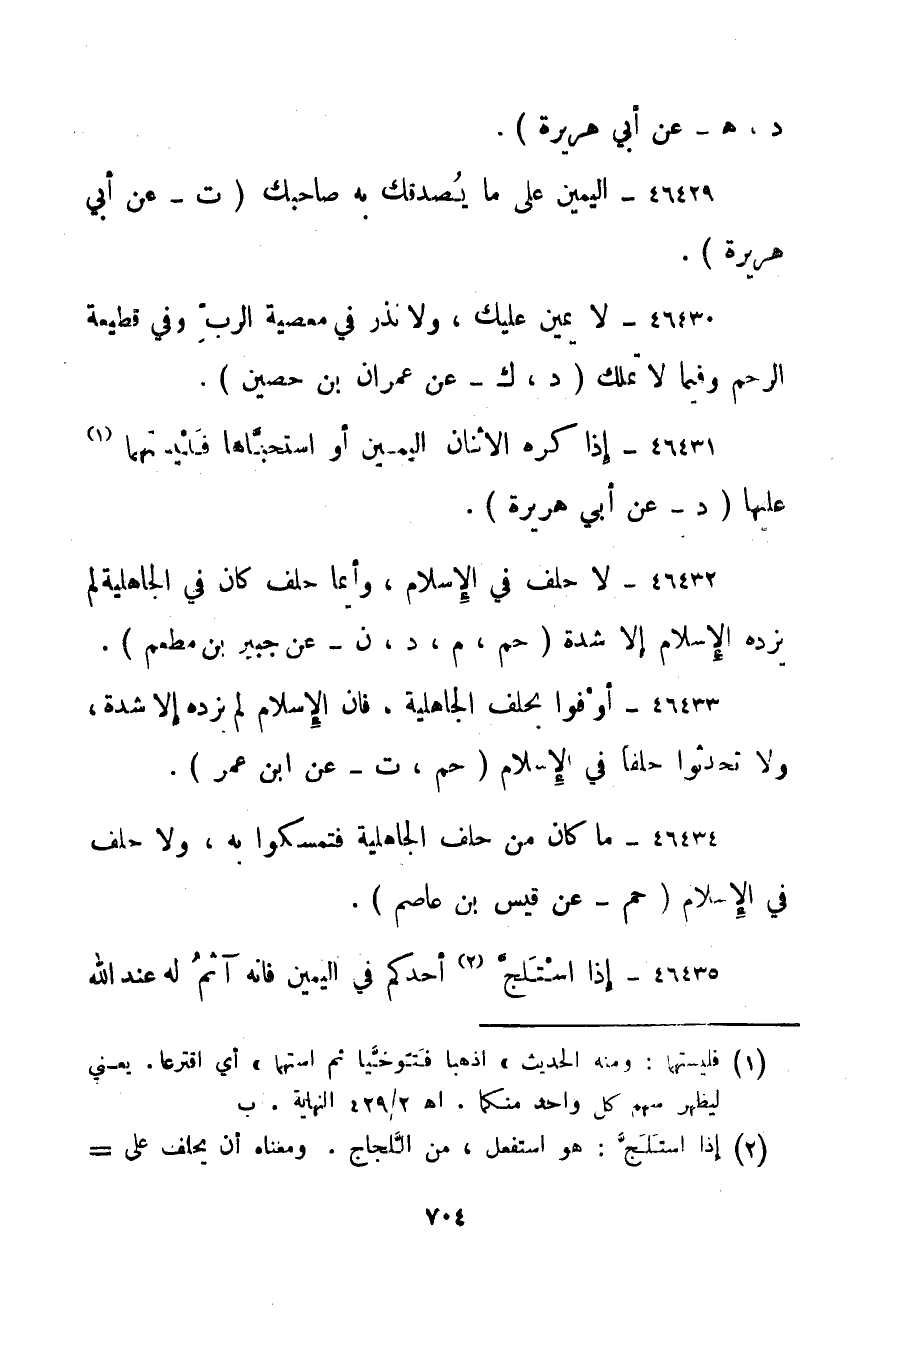 د ، ه ـ عن أبي هريرة ) .
٤٦٤٢٩ ـ اليمين على ما يُصدقك به صاحبك ( ت ـ عن أبي
هريرة ) .
٤٦٤٣٠ ـ لا يمين عليك ، ولا نذر في معصية الربِّ وفي قطيعة
الرحم وفيما لا تملك ( د ، ك ـ عن عمران بن حصين ) .
٤٦٤٣١ ـ إذا كره الاثنان اليمين أو استحبَّاها فَلْيَستهما (١)
عليها ( د ـ عن أبي هريرة ) .
٤٦٤٣٢ ـ لا حلف في الإسلام ، وأيما حلف كان في الجاهلية لم
يزده الإسلام إلا شدة ( حم ، م ، د ، ن ـ عن جبير بن مطعم ) .
٤٦٤٣٣ ـ أوْفوا بحلف الجاهلية . فان الإسلام لم يزده إلا شدة ،
ولا تحدثوا حلفاً في الإسلام ( حم ، ت ـ عن ابن عمر ) .
٤٦٤٣٤ ـ ما كان من حلف الجاهلية فتمسكوا به ، ولا حلف
في الإسلام ( حم ـ عن قيس بن عاصم ) .
٤٦٤٣٥ ـ إذا اسْتَلَجَّ (٢) أحدكم في اليمين فانه آثمُ له عند الله
(١) فليستهما : ومنه الحديث « اذهبا فَتَوَخَّيا ثم استهما » أي اقترعا . يعني
ليظهر سهم كل واحد منكما . اه ٤٢٩/٢ النهاية . ب
(٢) إذا استَلَجَّ : هو استفعل ، من اللَّجاج . ومعناه أن يحلف على =
٧٠٤